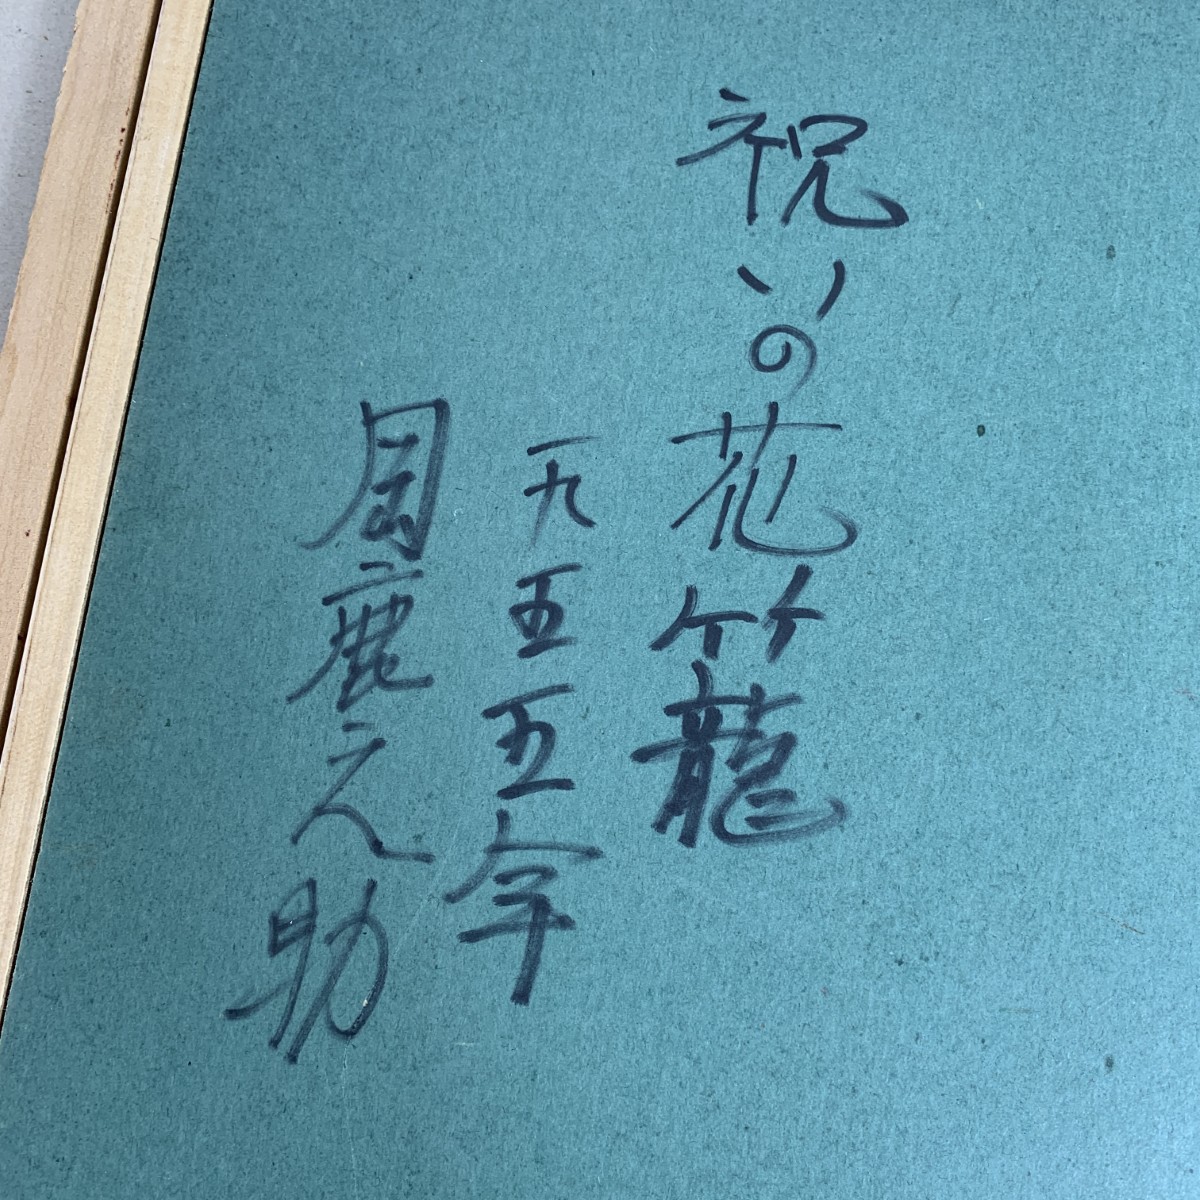 祝いの花籠
一九五五年
岡鹿之助